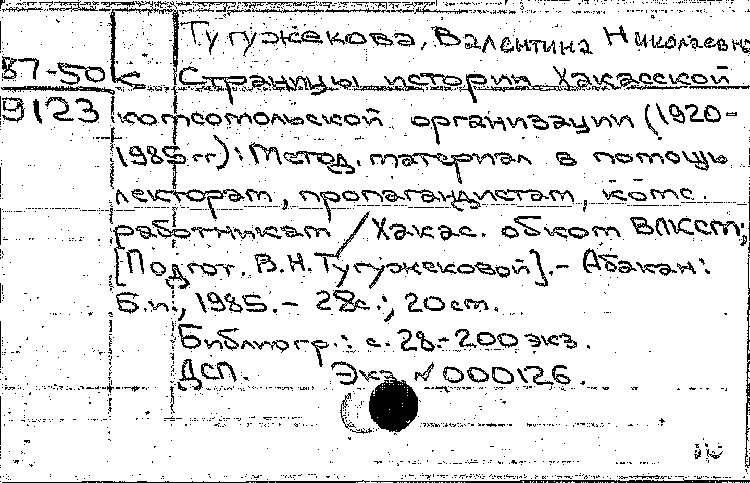 Тугужекова, Валентина Николаевна
87-50 Страницы истории Хакасской
9123 комсомольской организации (1920-
1985 гг): Метод. материал в помощь
лекторам, пропагандистам, комс.
работникам / Хакас. обком ВЛКСМ;
[Подгот. В.Н. Тугужековой]. - Абакан:
Б.и., 1985. - 28с.; 20 см.
Библиогр.: с. 28. - 200 экз.
ДСП. Экз № 000126.